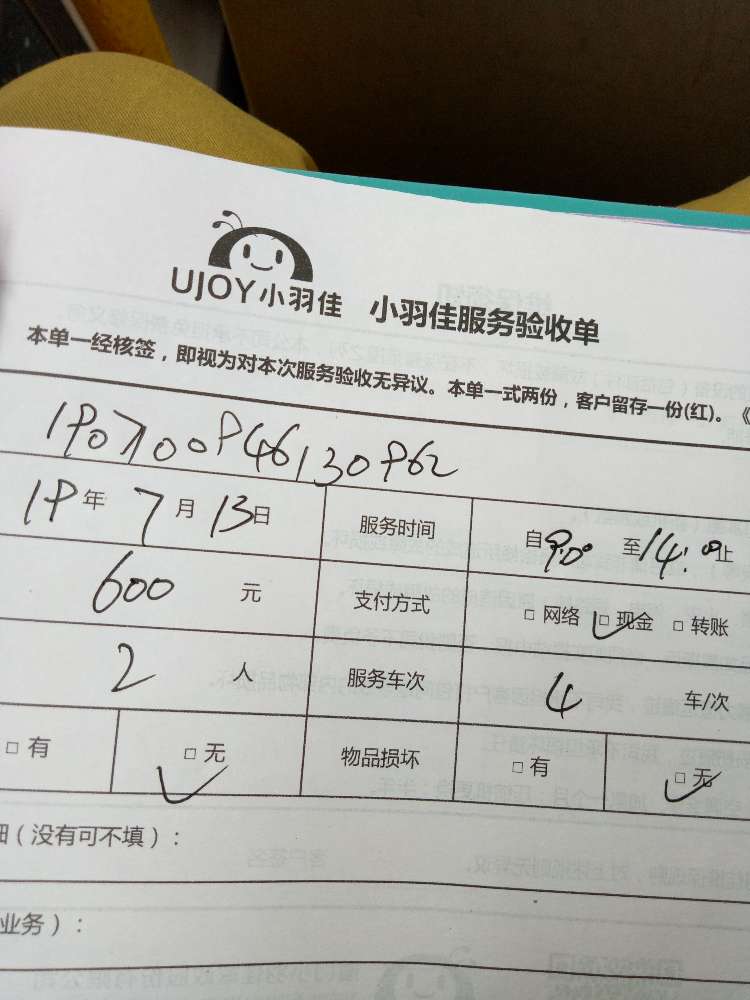 UJOY小羽佳 小羽佳服务验收单
本单一经核签，即视为对本次服务验收无异议。本单一式两份，客户留存一份(红)。《
190700946130962
19年 7月 13日 服务时间 自9:00 至14:00止
600 元 支付方式 □ 网络 □ 现金 □ 转账
2 人 服务车次 4 车/次
□ 有 □ 无 物品损坏 □ 有 □ 无
细（没有可不填）：
业务）：